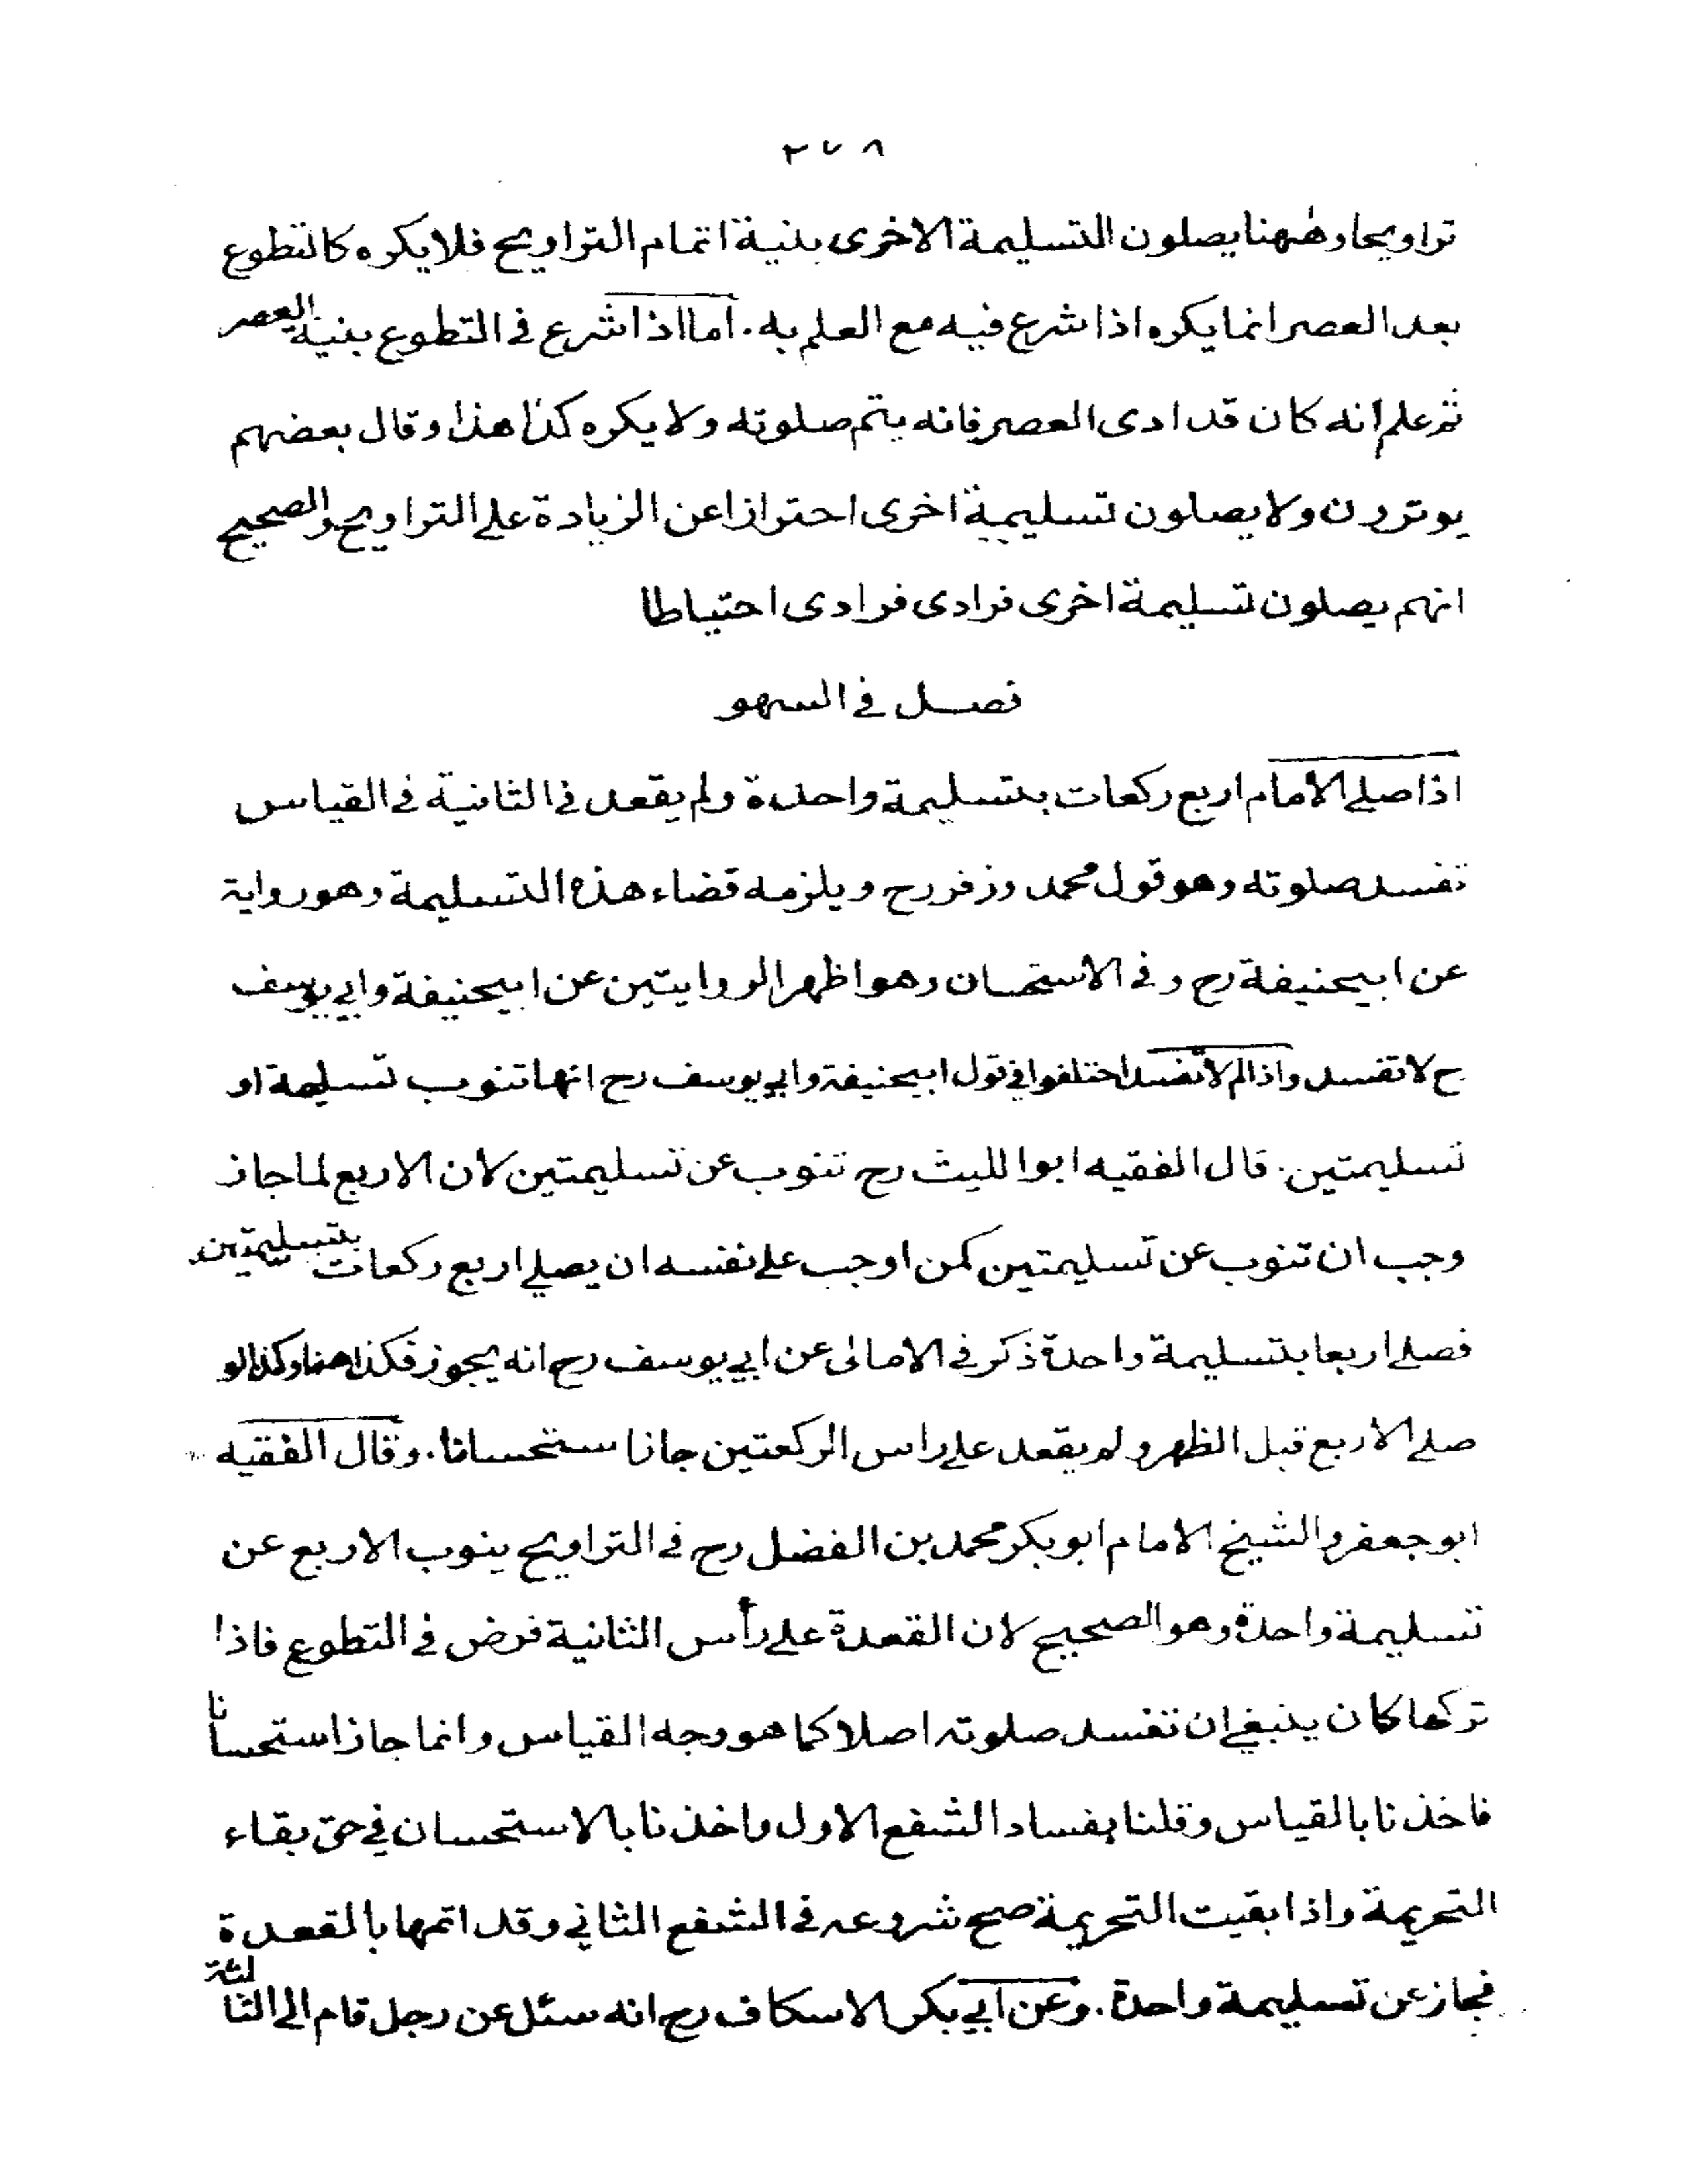 ٢٧٨
تراويحا وههنا يصلون التسليمة الاخرى بنية اتمام التراويح فلا يكره كالتطوع
بعد العصر انما يكره اذا شرع فيه مع العلم به. اما اذا شرع في التطوع بنية العصر
ثم علم انه كان قد ادى العصر فانه يتم صلوته ولا يكره كذا هذا وقال بعضهم
يوترون ولا يصلون تسليمة اخرى احترازا عن الزيادة على التراويح والصحيح
انهم يصلون تسليمة اخرى فرادى فرادى احتياطا
فصل في السهو
اذا صلى الامام اربع ركعات بتسليمة واحدة ولم يقعد في الثانية في القياس
تفسد صلوته وهو قول محمد وزفر رح ويلزمه قضاء هذه التسليمة وهو رواية
عن ابيحنيفة رح وفي الاستحسان وهو اظهر الروايتين عن ابيحنيفة وابي يوسف
رح لا تفسد واذا لم لا تفسد اختلفوا في قول ابيحنيفة وابي يوسف رح انها تنوب تسليمة او
تسليمتين. قال الفقيه ابوا لليث رح تنوب عن تسليمتين لان الاربع لما جاز
وجب ان تنوب عن تسليمتين كمن اوجب على نفسه ان يصلي اربع ركعات بتسليمتين
فصلى اربعا بتسليمة واحدة ذكر في الامالى عن ابي يوسف رح انه يجوز فكذا هنا وكذا لو
صلى الاربع قبل الظهر ولم يقعد على راس الركعتين جاز استحسانا. وقال الفقيه
ابو جعفر والشيخ الامام ابو بكر محمد بن الفضل رح في التراويح ينوب الاربع عن
تسليمة واحدة وهو الصحيح لان القعدة على رأس الثانية فرض في التطوع فاذا
تركها كان ينبغي ان تفسد صلوته اصلا كما هو وجه القياس وانما جاز استحسانا
فاخذنا بالقياس وقلنا بفساد الشفع الاول واخذنا بالاستحسان في حق بقاء
التحريمة واذا بقيت التحريمة صح شروعه في الشفع الثاني وقد اتمها بالقعدة
فجاز عن تسليمة واحدة. وعن ابي بكر الاسكاف رح انه سئل عن رجل قام الى الثالثة